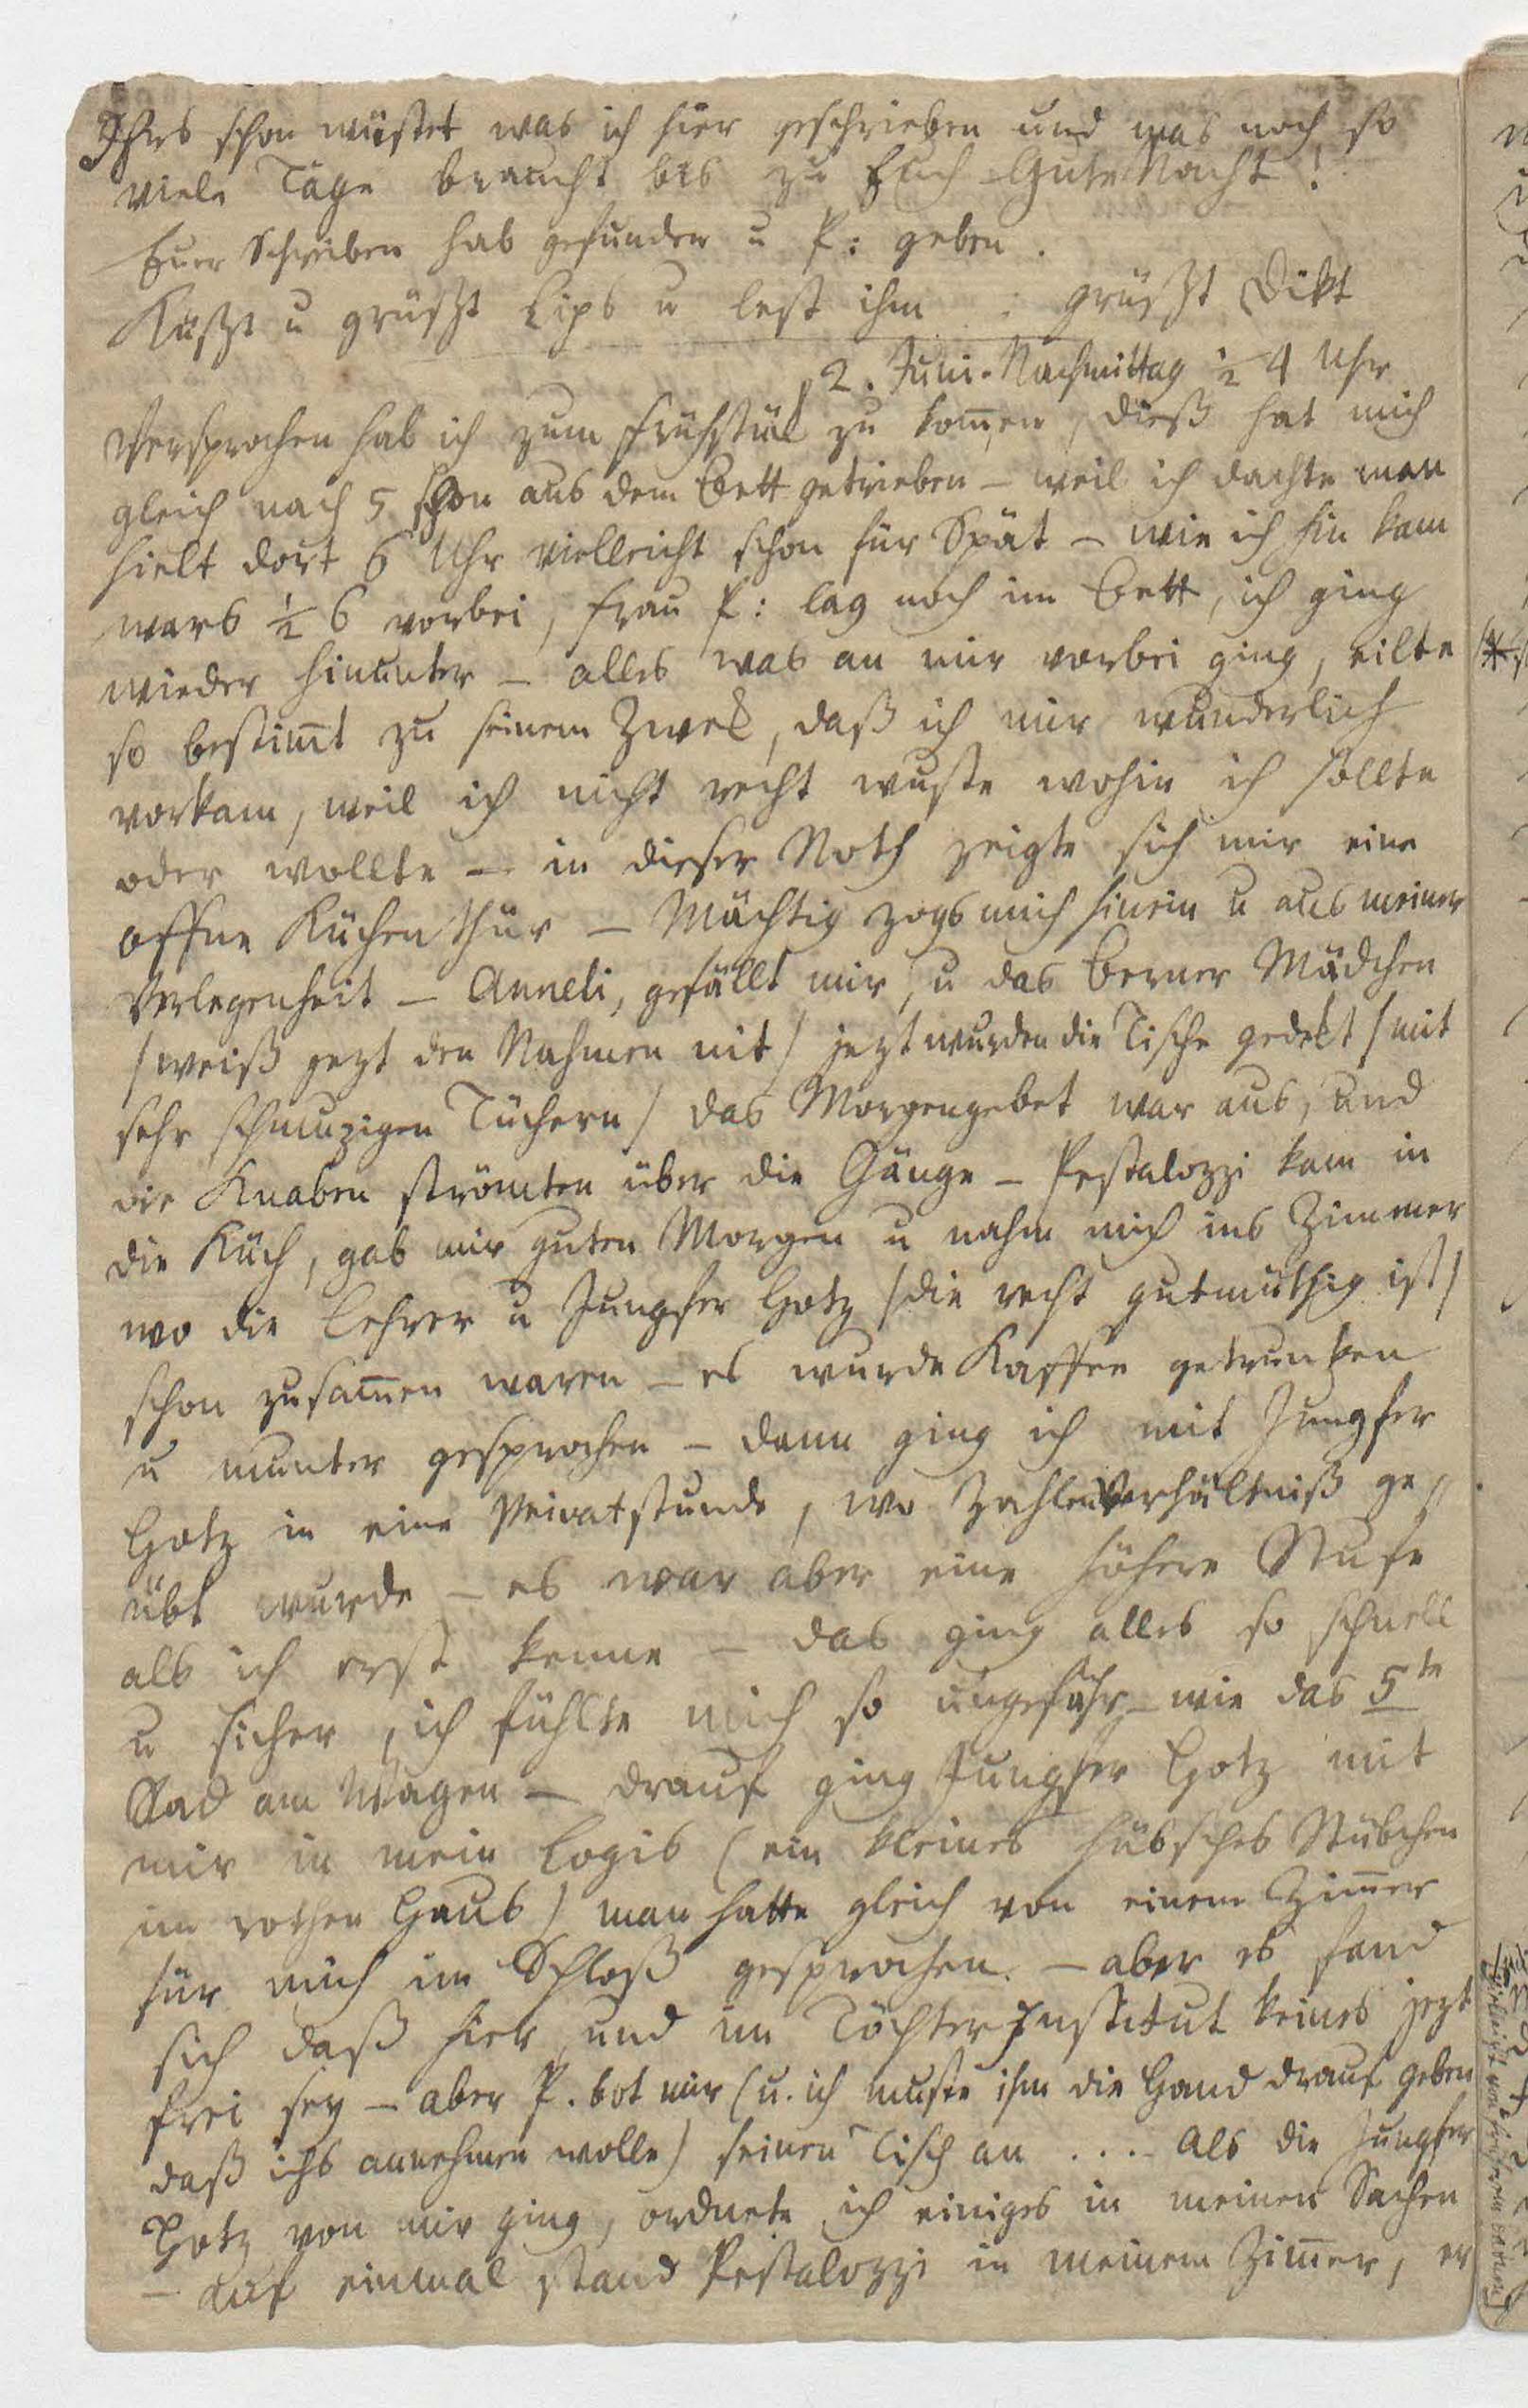 Ihrs schon wüstet was ich hier geschrieben und was noch so
viele Täge braucht bis zu Euch Gute Nacht!
Euer Schreiben hab gefunden u P: geben.
Küßt u grüßt Lips u lest ihm : grüßt Dikt
2. Juni. Nachmittag ½ 4 Uhr
Versprochen hab ich zum Frühstük zu kom̅en, dieß hat mich
gleich nach 5 schon aus dem Bett getrieben – weil ich dachte man
hielt dort 6 Uhr vielleicht schon für Spät – wie ich hin kam
wars ½ 6 vorbei, Frau P: lag noch im Bett, ich ging
wieder hinunter – alles was an mir vorbei ging, eilte
so bestim̅t zu seinem Zwek, daß ich mir wunderlich
vorkam, weil ich nicht recht wuste wohin ich sollte
oder wollte – in dieser Noth zeigte sich mir eine
offne Küchenthür – Mächtig zogs mich hinein u aus meiner
Verlegenheit – Anneli, gefällt mir, u das Berner Mädchen
/weiß jezt den Nahmen nit/ jezt wurden die Tische gedekt /mit
sehr schmuzigen Tüchern/ das Morgengebet war aus, und
die Knaben strömten über die Gänge – Pestalozzi kam in
die Küch, gab mir guten Morgen u nahm mich ins Zimmer
wo die Lehrer u Jungfer Hotz /die recht gutmüthig ist/
schon zusam̅en waren – es wurde Kaffee getrunken
u munter gesprochen – dann ging ich mit Jungfer
Hotz in eine Privatstunde, wo Zahlenverhältniß ge=
übt wurde – es war aber eine höhere Stufe
als ich erst kenne – das ging alles so schnell
u sicher, ich fühlte mich so ungefähr wie das 5te
Rad am Wagen – drauf ging Jungfer Hotz mit
mir in mein Logis (ein kleines hübsches Stübchen
im rothen Haus) man hatte gleich von einem Zim̅er
für mich im Schloß gesprochen. – aber es fand
sich daß hier, und im Töchterinstitut keines jezt
frei sey – aber P. bot mir (u. ich muste ihm die Hand drauf geben
daß ichs annehmen wolle) seinen Tisch an . . . . Als die Jungfer
Hotz von mir ging, ordnete ich einiges in meinen Sachen
– auf einmal stand Pestalozzi in meinem Zim̅er, er